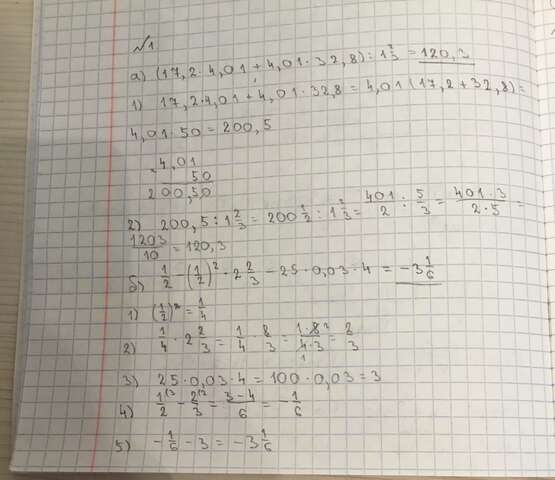 №1
а) (17,2·4,01+4,01·32,8):1 2/3=120,3
1) 17,2·4,01+4,01·32,8=4,01(17,2+32,8)=
4,01·50=200,5
4,01
50
200,50
2) 200,5:1 2/3=200 1/2:1 2/3=401/2:5/3=401·3/2·5=
1203/10=120,3
б) 1/2-(1/2)²·2 2/3-25·0,03·4=-3 1/6
1) (1/2)²=1/4
2) 1/4·2 2/3=1/4·8/3=1·8 2/4·3 1=2/3
3) 25·0,03·4=100·0,03=3
4) 1/2 (3-2/3 (2=3-4/6=-1/6
5) -1/6-3=-3 1/6